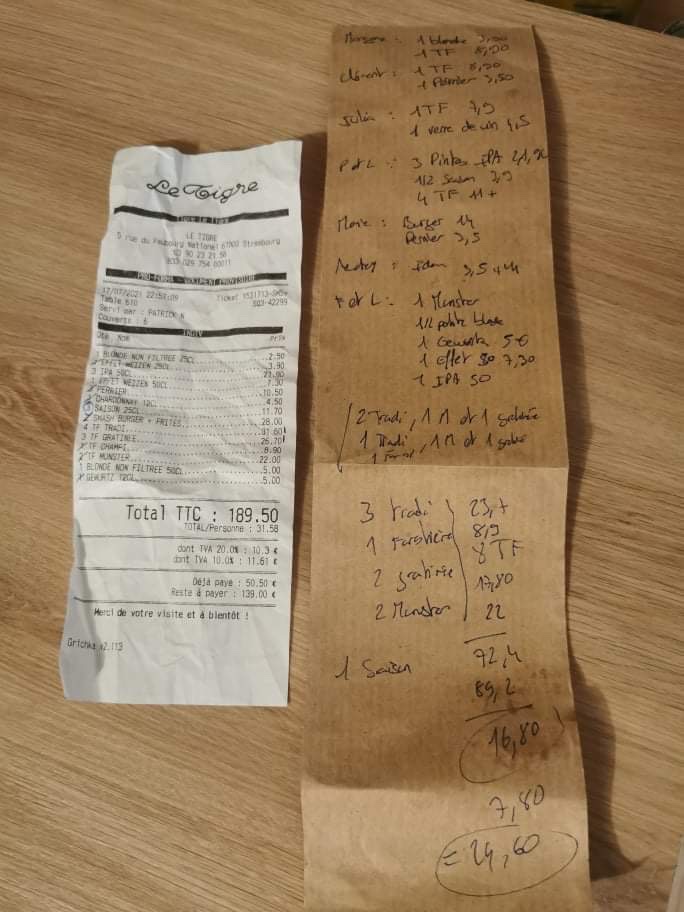 Le Tigre
LE TIGRE
5 rue du Faubourg National 67000 Strasbourg
PRO-FORMA - DOCUMENT PROVISOIRE
17/07/2021 22:57:09
Table 610
Servi par : PATRICK N
Couverts : 6
Ticket 1521713
Qté Nom
1 BLONDE NON FILTREE 25CL 2.50
EFFET WEIZEN 25CL 3.90
3 IPA 50CL 21.90
1 EFFET WEIZEN 50CL 7.30
PERRIER 10.50
CHARDONNAY 12CL 4.50
SAISON 25CL 11.70
2 SMASH BURGER + FRITES 28.00
4 TF TRADI 31.60
3 TF GRATINEE 26.70
TF CHAMPI 8.90
2 TF MUNSTER 22.00
1 BLONDE NON FILTREE 50CL 5.00
GEWURTZ 12CL 5.00
Total TTC : 189.50
TOTAL/Personne : 31.58
dont TVA 20.0% : 10.3 €
dont TVA 10.0% : 11.61 €
Déjà payé : 50.50 €
Reste à payer : 139.00 €
Merci de votre visite et à bientôt !
1 blonde
1 TF 8,90
Clément : 1 TF 8,90
1 Perrier 3,50
Julia : 1 TF 7,9
1 verre de vin 4,5
P et L : 3 Pintes IPA 21,90
1/2 Saison 3,9
4 TF
Marie : Burger 14
Perrier 3,5
Idem 3,5 + 14
P et L : 1 Munster
1 Gewurtz 5€
1 Effet 50 7,30
1 IPA 50
2 Tradi, 1 M et 1 gratinée
1 Tradi, 1 M et 1 grat
3 tradi 23,7
1 forestière 8,9
8 TF
2 gratinée 17,80
2 Munster 22
72,4
1 Saison
89,2
16,80
7,80
= 24,60